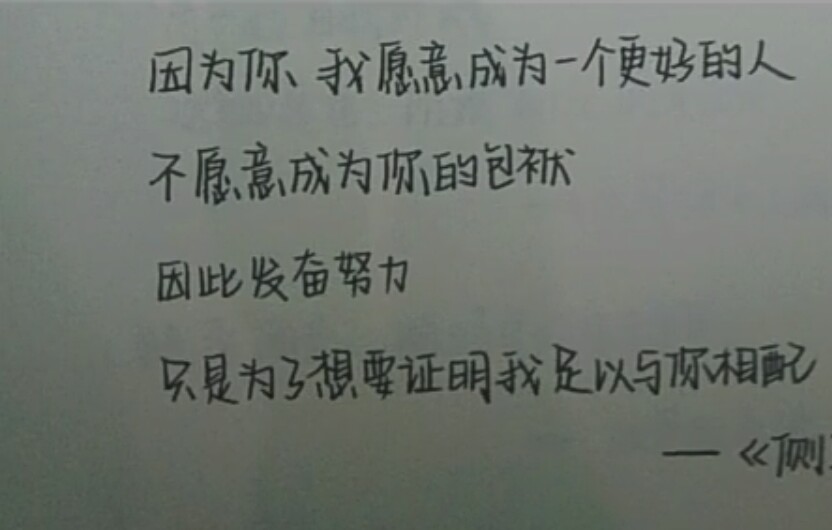 因为你 我愿意成为一个更好的人
不愿意成为你的包袱
因此发奋努力
只是为了想要证明我足以与你相配
——《侧